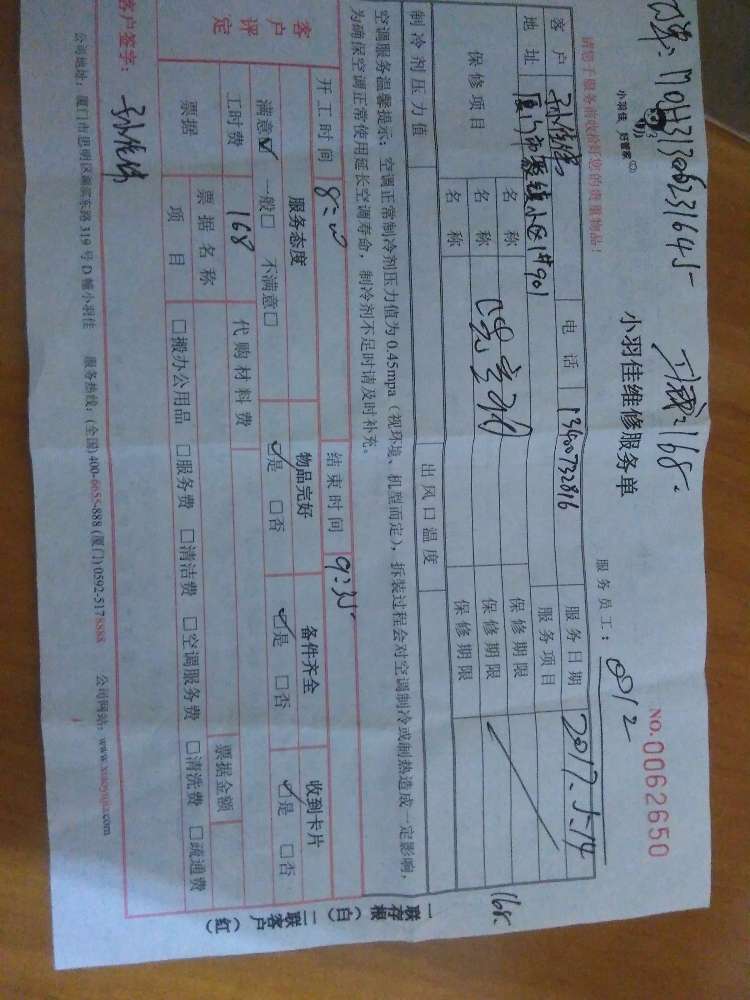 小羽佳 好管家
小羽佳维修服务单
服务员工: 012
NO.0062650
请您于服务前收拾好您的贵重物品!
客户
电话
服务日期 2017.5.14
地址
服务项目
保修项目
名称
保修期限
名称
保修期限
名称
保修期限
168.
制冷剂压力值
出风口温度
空调服务温馨提示: 空调正常制冷剂压力值为 0.45mpa (视环境、机型而定), 拆装过程会对空调制冷或制热造成一定影响,
为确保空调正常使用延长空调寿命, 制冷剂不足时请及时补充。
开工时间 8:00
结束时间 9:35
客户评定
服务态度
物品完好
备件齐全
收到卡片
满意☑ 一般□ 不满意□
☑是 □否
☑是 □否
☑是 □否
工时费 168
代购材料费
票据
票据名称
票据金额
项目
□搬办公用品 □服务费 □清洁费 □空调服务费 □清洗费 □疏通费
客户签字:
公司地址: 厦门市思明区湖滨东路 319 号 D 幢小羽佳 服务热线: (全国) 400-6655-888 (厦门) 0592-5178888 公司网站: www.xiaoyujia.com
一联存根(白) 二联客户(红)